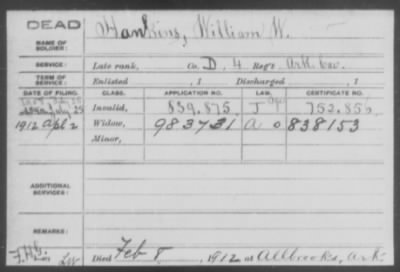 DEAD
NAME OF SOLDIER: Hankins, William W.
SERVICE: Late rank, Co. D, 4 Reg't Ark. Cav.
TERM OF SERVICE: Enlisted , 1 Discharged , 1
DATE OF FILING. CLASS. APPLICATION NO. LAW. CERTIFICATE NO.
July 25 Invalid, 839.875 J 753.856
1912 Apl 2 Widow, 983731 a o 838153
Minor,
ADDITIONAL SERVICES:
REMARKS:
Died Feb 8, 1912 at Allbrooks, Ark.